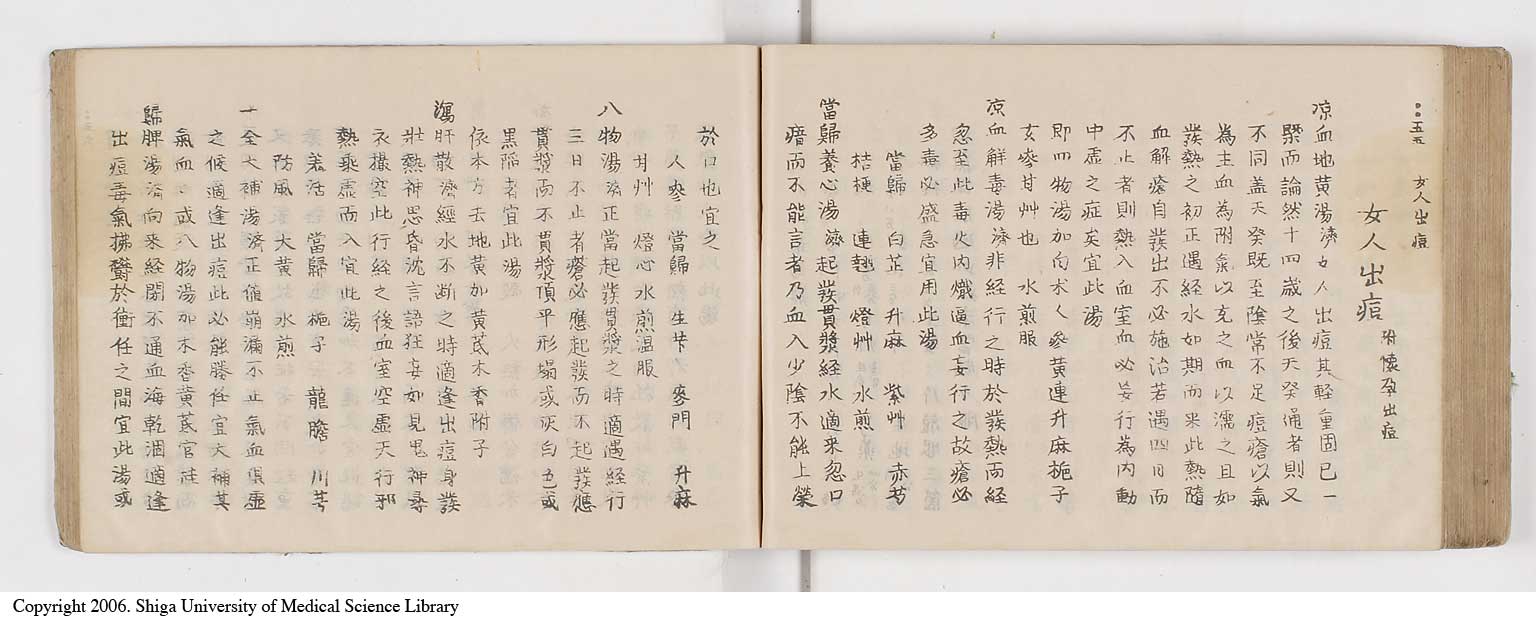 五五 女人出痘
女人出痘 附懷孕出痘
凉血地黄湯濟女人出痘其輕重固已一
槩而論然十四歳之後天癸通者則又
不同盖天癸既至陰常不足痘瘡以氣
為主血為附氣以充之血以濡之且如
發熱之初正遇經水如期而来此熱隨
血解瘡自發出不必施治若遇四日而
不止者則熱入血室血必妄行為内動
中虚之症矣宜此湯
即四物湯加白朮人參黄連升麻梔子
玄參甘艸也 水煎服
凉血解毒湯濟非経行之時於發熱而経
忽至此毒火内熾逼血妄行之故瘡必
多毒必盛急宜用此湯
當歸 白芷 升麻 紫艸 赤芍
桔梗 連翹 燈艸 水煎
當歸養心湯濟起發貫漿経水適来忽口
瘖而不能言者乃血入少陰不能上榮
於口也宜之
人參 當歸 生芐 麥門 升麻
甘艸 燈心 水煎温服
八物湯濟正當起發貫漿之時適遇経行
三日不止者瘡必應起發而不起發應
貫漿而不貫漿頂平形塌或灰白色或
黒陥者宜此湯
依本方去地黄加黄芪木香附子
瀉肝散濟經水不断之時適逢出痘身發
壮熱神思昏沈言語狂妄如見鬼神尋
衣撮空此行経之後血室空虚天行邪
熱乘虚而入宜此湯
羗活 當歸 梔子 龍膽 川芎
防風 大黄 水煎
十全大補湯濟正値崩漏不止氣血俱虚
之候適逢出痘此必能勝任宜大補其
氣血 或八物湯加木香黄芪官桂
歸脾湯濟向来経閉不通血海乾涸適逢
出痘毒氣拂欝於衝任之間宜此湯或
Copyright 2006. Shiga University of Medical Science Library